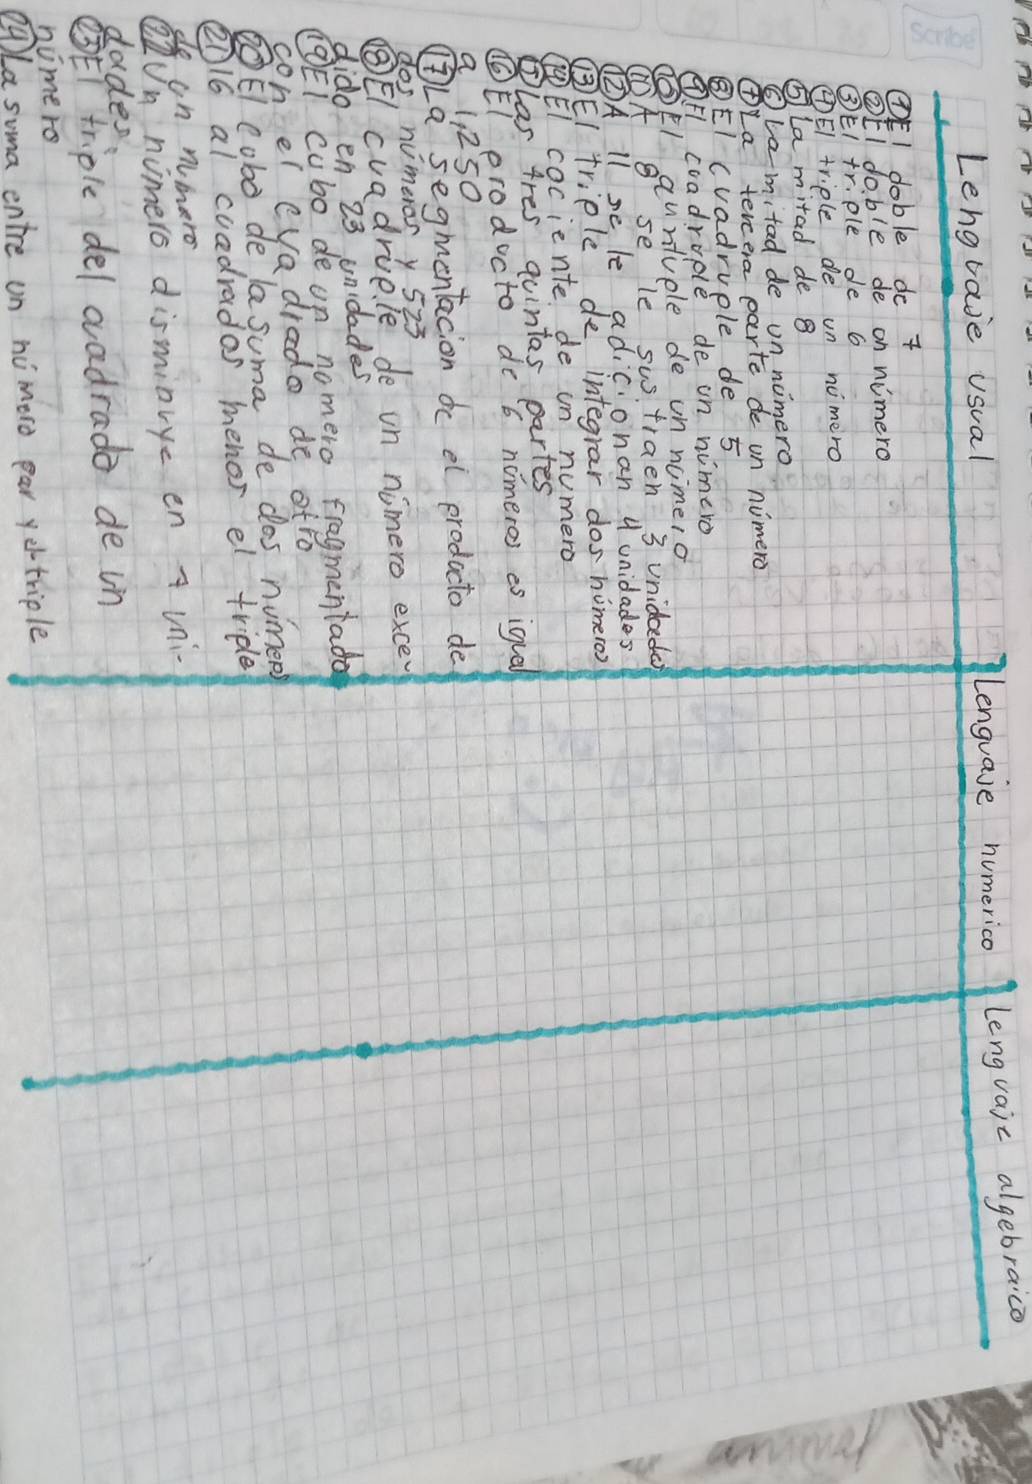 Scribe
Lenguaje usual
Lenguaje numerico
Lenguaje algebraico
① El doble de 7
② El doble de un número
③ El triple de 6
④ El triple de un número
⑤ La mitad de 8
⑥ La mitad de un número
⑦ La tercera parte de un número
⑧ El cuadruple de 5
⑨ El cuadruple de un número
⑩ El quntuple de un número
⑪ A 8 se le sustraen 3 unidades
⑫ A 11 se le adicionan 4 unidades
⑬ El triple de integrar dos números
⑭ El cociente de un número
⑮ Las tres quintas partes
⑯ El producto de 6 números es igual
a 1250
⑰ La segmentación de el producto de
dos números y 523
⑱ El cuadruple de un número exce-
dido en 23 unidades
⑲ El cubo de un número fragmentado
con el cuadrado de otro
⑳ El cubo de la suma de dos números
㉑ 16 al cuadrados menos el triple
de un número
㉒ Un número disminuye en 7 uni-
dades
㉓ El triple del cuadrado de un
número
㉔ La suma entre un número par y el triple